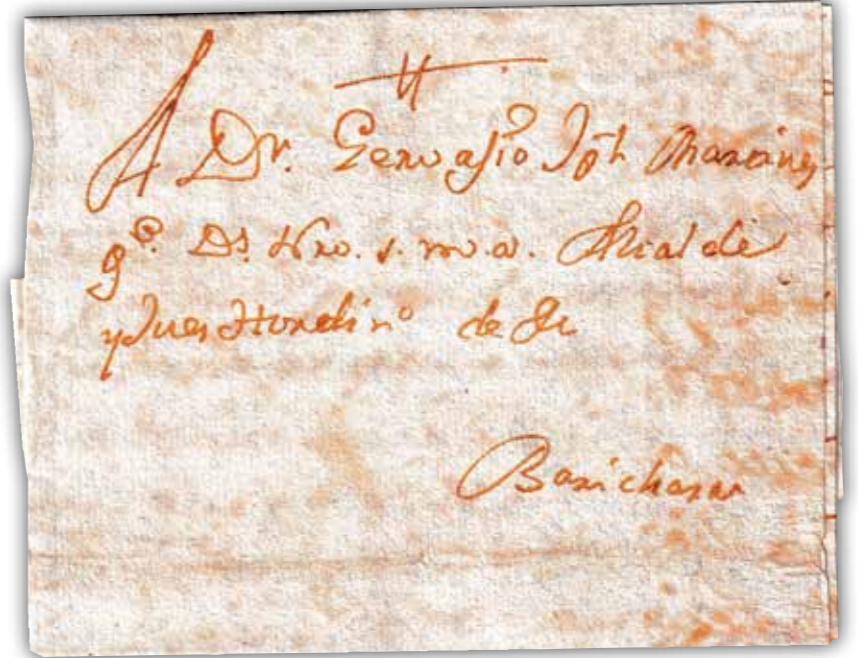 A Dn. Gervasio Jph Martines
ge. Ds. Nro. s. m. a. Alcalde
y Jues Hordino de
Barichara